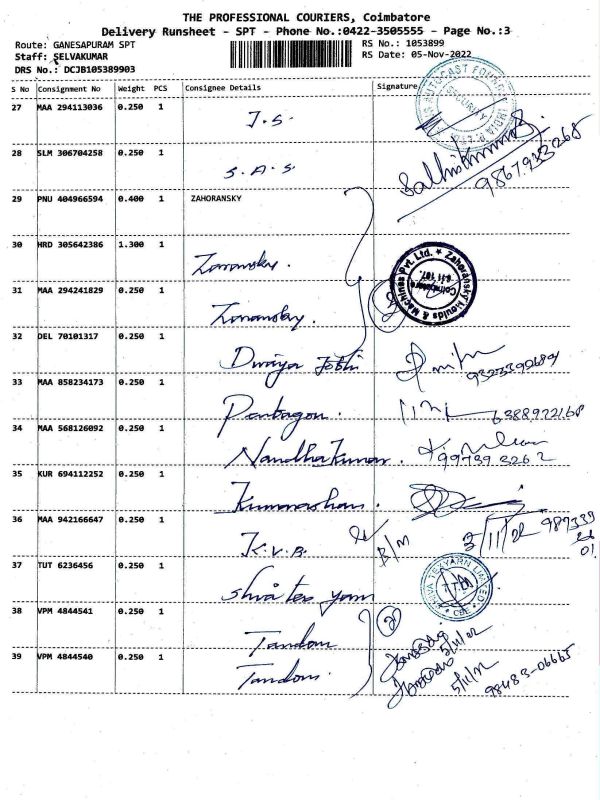 THE PROFESSIONAL COURIERS, Coimbatore
Delivery Runsheet - SPT - Phone No.:0422-3505555 - Page No.:3
Route: GANESAPURAM SPT
RS No.: 1053899
Staff: SELVAKUMAR
RS Date: 05-Nov-2022
DRS No.: DCJB105389903
S No Consignment No Weight PCS Consignee Details Signature
27 MAA 294113036 0.250 1 J.S.
28 SLM 306704258 0.250 1 S.A.S
29 PNU 404966594 0.400 1 ZAHORANSKY
30 HRD 305642386 1.300 1 Zoransky.
Zahoransky Moulds & Machines Pvt. Ltd. * Coimbatore 641 107.
31 MAA 294241829 0.250 1 Zoransky.
32 DEL 70101317 0.250 1
33 MAA 858234173 0.250 1 Pentagon.
34 MAA 568126092 0.250 1 Nandhakumar.
99739 3262
35 KUR 694112252 0.250 1
36 MAA 942166647 0.250 1 K.V.B. B/M
37 TUT 6236456 0.250 1
38 VPM 4844541 0.250 1 Tandom
39 VPM 4844540 0.250 1 Tandom.
98483-06665